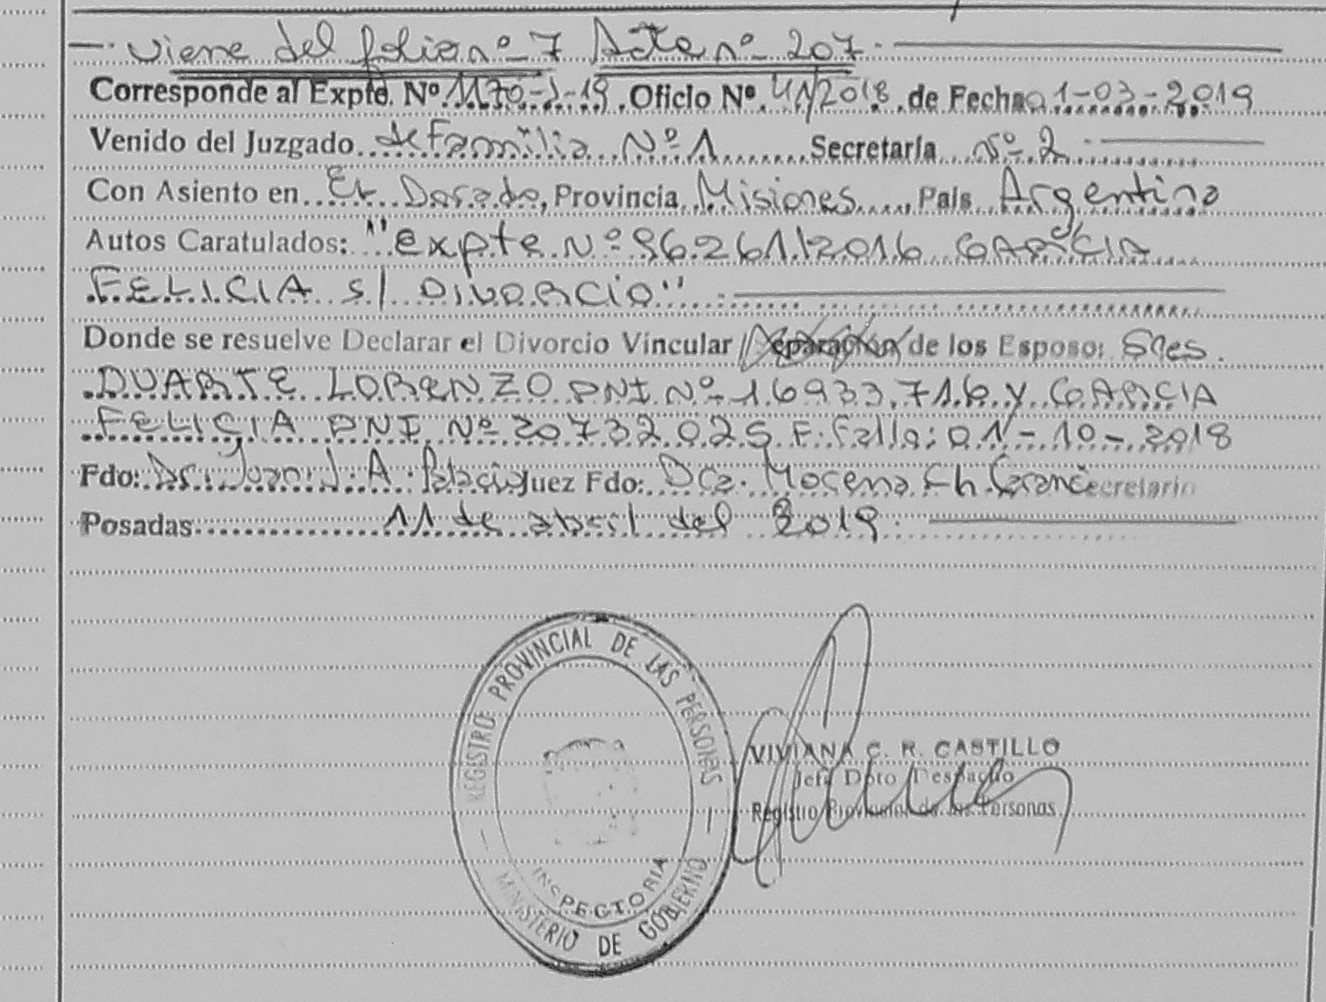 —. viene del folio nº 7 Acta nº 207.
Corresponde al Expte. Nº 1170-J-19 Oficio Nº 41/2018 de Fecha 01-03-2019
Venido del Juzgado de Familia Nº 1 Secretaría Nº 2.
Con Asiento en El Dorado, Provincia Misiones, País Argentina
Autos Caratulados: "Expte Nº 96261/2016 GARCIA
FELICIA S/ DIVORCIO".
Donde se resuelve Declarar el Divorcio Vincular / Separación de los Esposo: Sres.
DUARTE LORENZO DNI Nº 16933.716 Y GARCIA
FELICIA DNI Nº 20732025 F. Fallo: 01-10-2018
Fdo: Dr. Juan J. A. Juez Fdo: Dra. Ch. Secretario
Posadas 11 de abril del 2019.
REGISTRO PROVINCIAL DE LAS PERSONAS
INSPECTORIA
MINISTERIO DE GOBIERNO
VIVIANA C. R. CASTILLO
Jefa Dpto Despacho
Registro Provincial de las Personas